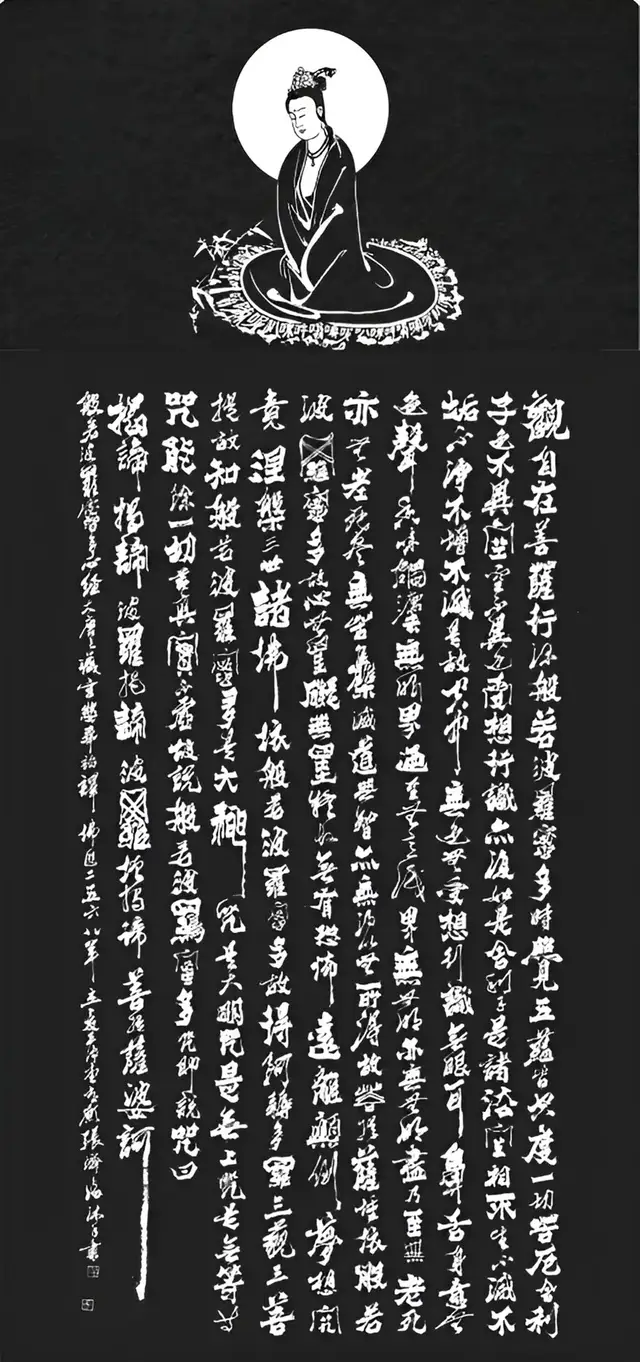 觀自在菩薩行深般若波羅蜜多時照見五蘊皆空度一切苦厄舍利
子色不異空空不異色受想行識亦復如是舍利子是諸法空相不生不滅不
垢不淨不增不減是故空中無色無受想行識無眼耳鼻舌身意無
色聲香味觸法無眼界乃至無意識界無無明亦無無明盡乃至無老死
亦無老死盡無苦集滅道無智亦無得以無所得故菩提薩埵依般若
波羅蜜多故心無罣礙無罣礙故無有恐怖遠離顛倒夢想究
竟涅槃三世諸佛依般若波羅蜜多故得阿耨多羅三藐三菩
提故知般若波羅蜜多是大神咒是大明咒是無上咒是無等等
咒能除一切苦真實不虛故說般若波羅蜜多咒即說咒曰
揭諦揭諦波羅揭諦波羅僧揭諦菩提薩婆訶
般若波羅蜜多心經大唐三藏玄奘奉詔譯佛歷二五六八年立夏張濟海沐手書